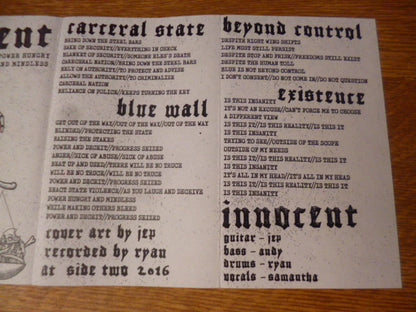 ent
POWER HUNGRY
AND MINDLESS
carceral state
BRING DOWN THE STEEL BARS
SAKE OF SECURITY//EVERYTHING IN CHECK
BLANKET OF SECURITY//SOMEONE ELSE'S DEATH
CARCERAL NATION//BRING DOWN THE STEEL BARS
RELY ON AUTHORITY//TO PROTECT AND ADVISE
ALLOWS THE AUTHORITY//TO CRIMINALIZE
CARCERAL NATION
RELIANCE ON POLICE//KEEPS TURNING THE KEY
blue wall
GET OUT OF THE WAY//OUT OF THE WAY//OUT OF THE WAY
BLINDED//PROTECTING THE STATE
RAISING THE STAKES
POWER AND DECEIT//PROGRESS SEIZED
ANGER//SICK OF ABUSE//SICK OF ABUSE
BEAT UP AND DEAD//THERE WILL BE NO TRUCE
WILL BE NO TRUCE//WILL BE NO TRUCE
POWER AND DECEIT//PROGRESS SEIZED
POWER AND DECEIT//PROGRESS SEIZED
EXACT STATE VIOLENCE//AS YOU LAUGH AND DECEIVE
POWER HUNGRY AND MINDLESS
WHILE MAKING OTHERS BLEED
POWER AND DECEIT//PROGRESS SEIZED
cover art by jep
recorded by ryan
at side two 2016
beyond control
DESPITE RIGHT WING SHIFTS
LIFE MUST STILL PERSIST
DESPITE STOP AND FRISK//FREEDOMS STILL EXIST
DESPITE THE HUMAN TOLL
BLUE IS NOT BEYOND CONTROL
I DON'T CONSENT//DO NOT COME IN//DO NOT QUESTION
existence
IS THIS INSANITY
IT'S NOT AN EXCUSE//CAN'T FORCE ME TO CHOOSE
A DIFFERENT VIEW
IS THIS IT//IS THIS REALITY//IS THIS IT
IS THIS INSANITY
TRYING TO SEE//OUTSIDE OF THE SCOPE
OUTSIDE OF MY NEEDS
IS THIS IT//IS THIS REALITY//IS THIS IT
IS THIS INSANITY
IS THIS IT//IS THIS REALITY//IS THIS IT
IS THIS INSANITY
IT'S ALL IN MY HEAD//IT'S ALL IN MY HEAD
IS THIS IT//IS THIS REALITY//IS THIS IT
IS THIS INSANITY
innocent
guitar - jep
bass - andy
drums - ryan
vocals - samantha